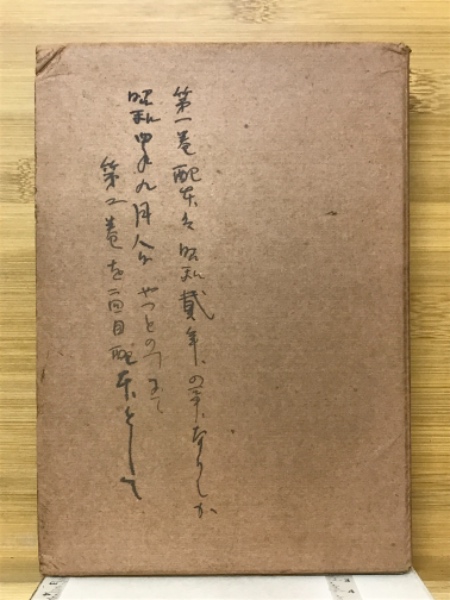 第一巻配本は昭和貳年、の事なりしか
昭和四年九月 やつとの
第二巻を二回目配本として